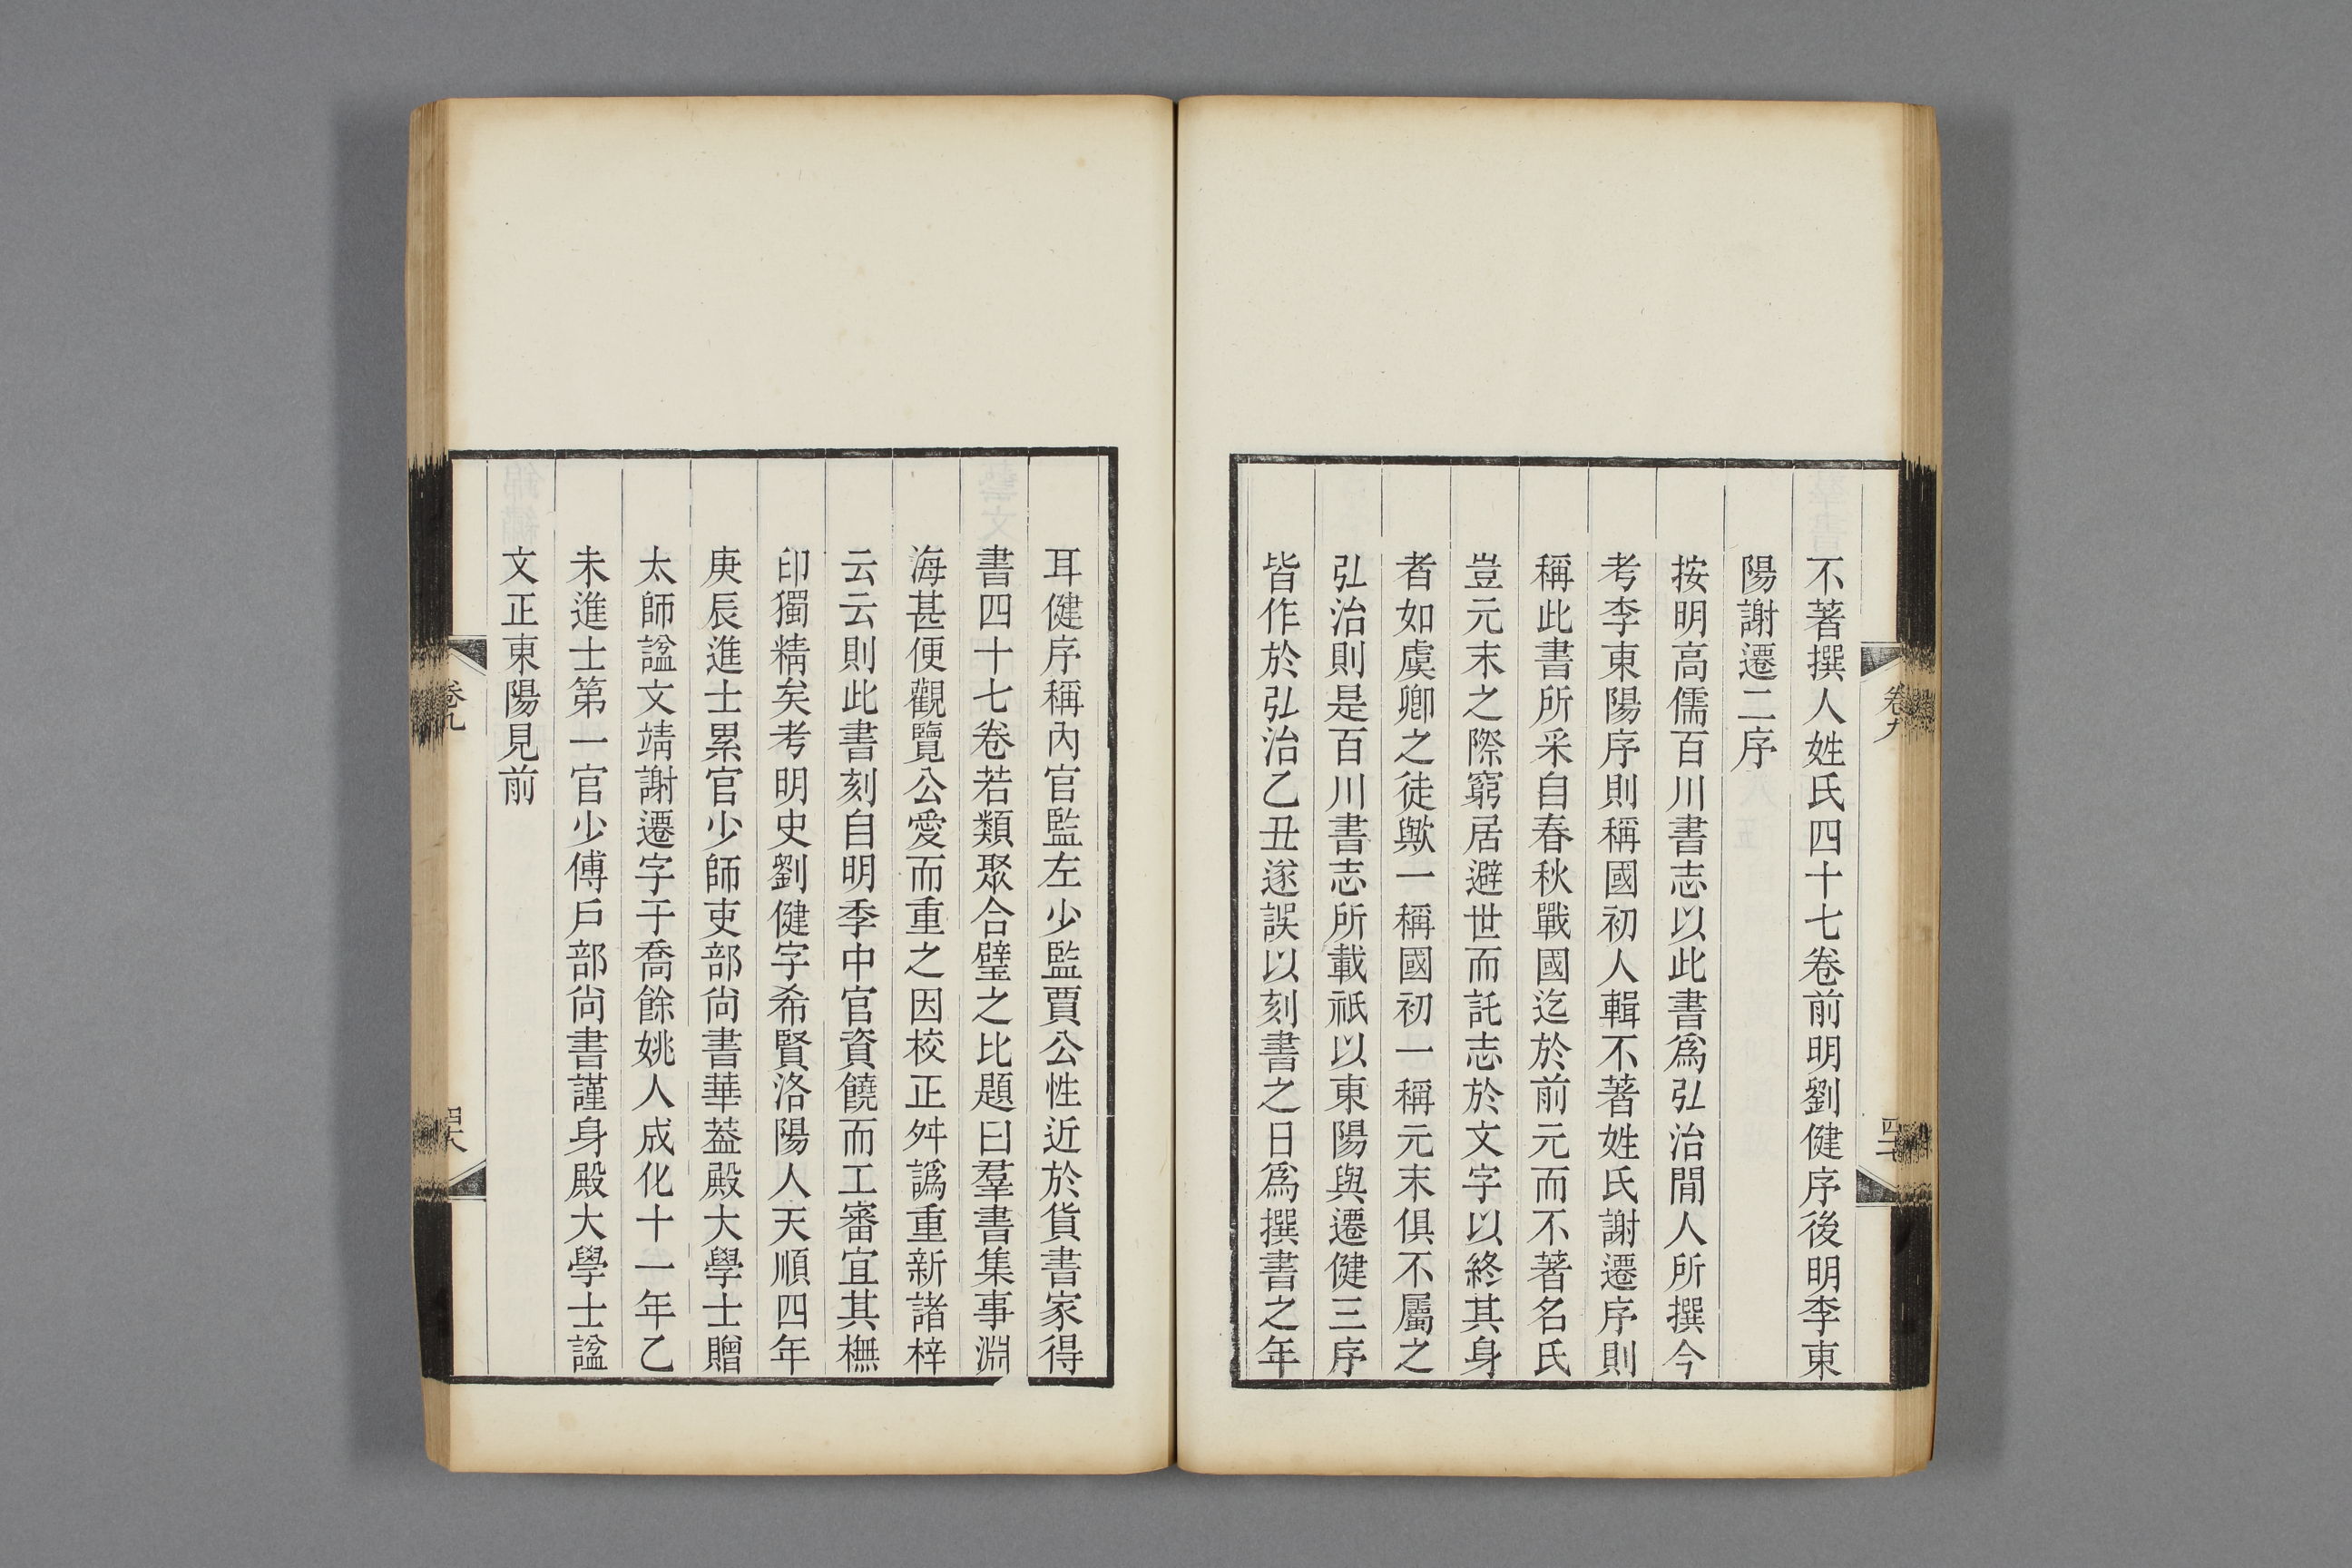 不著撰人姓氏四十七卷前明劉健序後明李東
陽謝遷二序
按明高儒百川書志以此書爲弘治閒人所撰今
考李東陽序則稱國初人輯不著姓氏謝遷序則
稱此書所采自春秋戰國迄於前元而不著名氏
豈元末之際窮居避世而託志於文字以終其身
者如虞卿之徒歟一稱國初一稱元末俱不屬之
弘治則是百川書志所載祇以東陽與遷健三序
皆作於弘治乙丑遂誤以刻書之日爲撰書之年
卷九
耳健序稱內官監左少監賈公性近於貨書家得
書四十七卷若類聚合璧之比題曰羣書集事淵
海甚便觀覽公愛而重之因校正舛譌重新諸梓
云云則此書刻自明季中官資饒而工審宜其橅
印獨精矣考明史劉健字希賢洛陽人天順四年
庚辰進士累官少師吏部尙書華葢殿大學士贈
太師諡文靖謝遷字于喬餘姚人成化十一年乙
未進士第一官少傅戶部尙書謹身殿大學士諡
文正東陽見前
卷九